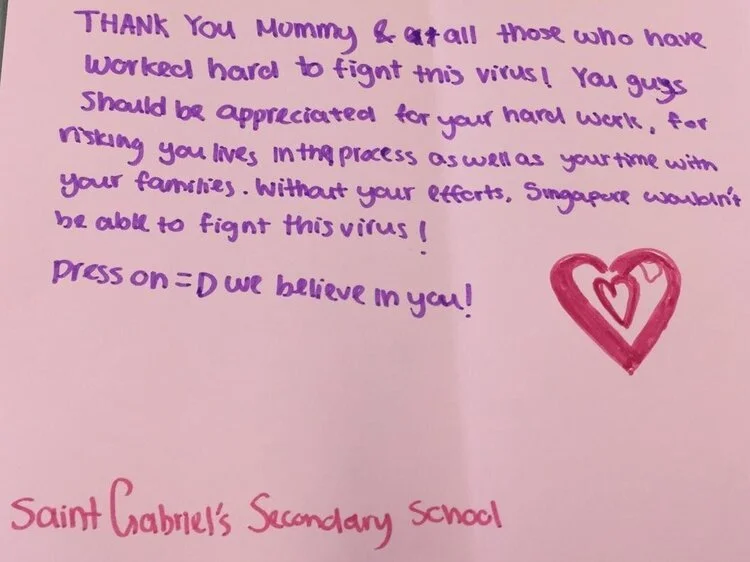 THANK YOU Mommy & all those who have
worked hard to fight this virus! You guys
should be appreciated for your hard work, for
risking you lives in the process as well as your time with
your families. Without your efforts, Singapore wouldn't
be able to fight this virus!
Press on =D we believe in you!
Saint Gabriel's Secondary School